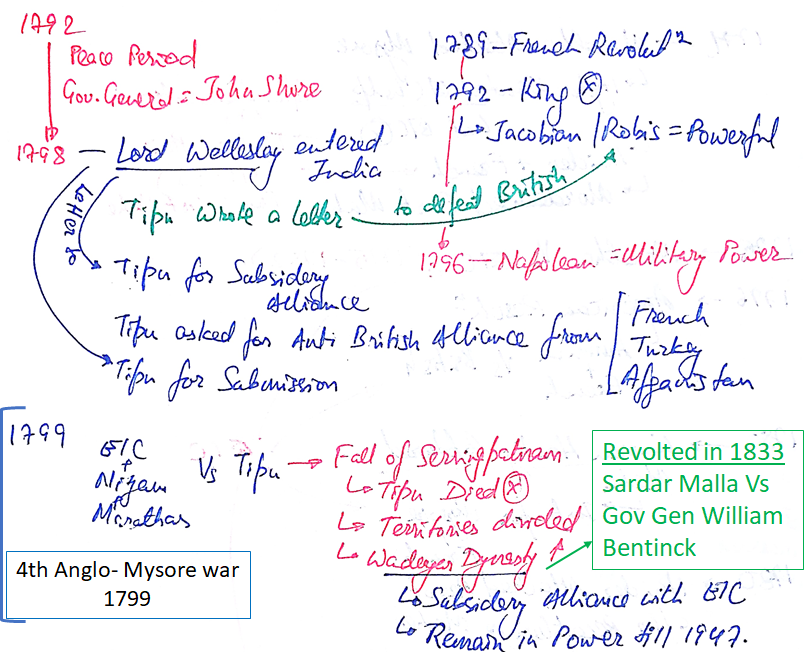 1792
Peace Period
Gov. General = John Shore
1798 – Lord Wellesley entered
India
1789 – French Revolutⁿ
1792 – King ⓧ
↳ Jacobian / Robis = Powerful
Tipu Wrote a letter to defeat British
1796 – Napolean = Military Power
Letter to
Tipu for Subsidery
Alliance
Tipu asked for Anti British Alliance from
French
Turkey
Affganistan
Tipu for Submission
1799
EIC
+
Nizam
+
Marathas
Vs Tipu → Fall of Serringpatnam
↳ Tipu Died ⓧ
↳ Territories divided
↳ Wadeyar Dynesty ↑
↳ Subsidery Alliance with EIC
↳ Remain in Power till 1947.
4th Anglo- Mysore war
1799
Revolted in 1833
Sardar Malla Vs
Gov Gen William
Bentinck